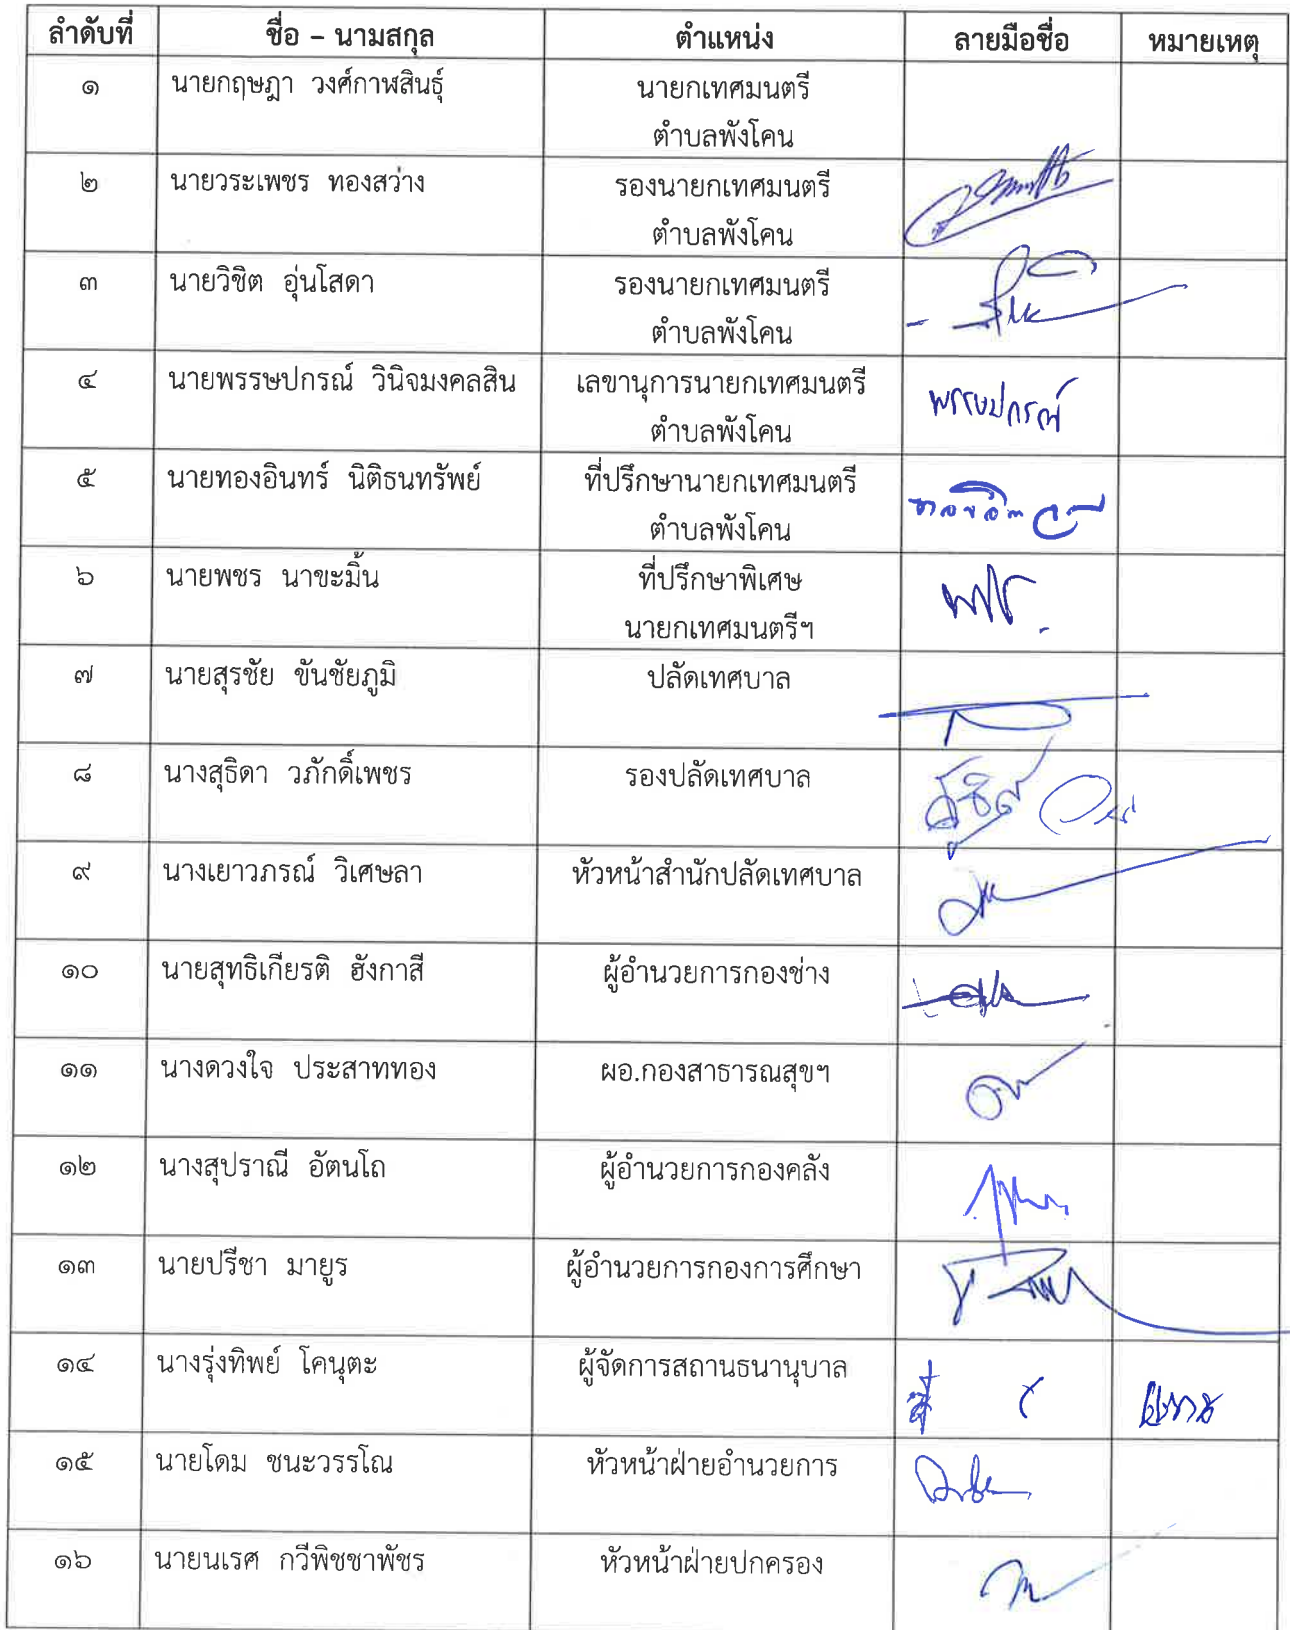 ลำดับที่ ชื่อ – นามสกุล ตำแหน่ง ลายมือชื่อ หมายเหตุ
๑ นายกฤษฎา วงศ์กาฬสินธุ์ นายกเทศมนตรี
ตำบลพังโคน
๒ นายวระเพชร ทองสว่าง รองนายกเทศมนตรี
ตำบลพังโคน
๓ นายวิชิต อุ่นโสดา รองนายกเทศมนตรี
ตำบลพังโคน
๔ นายพรรษปกรณ์ วินิจมงคลสิน เลขานุการนายกเทศมนตรี พรรษปกรณ์
ตำบลพังโคน
๕ นายทองอินทร์ นิติธนทรัพย์ ที่ปรึกษานายกเทศมนตรี
ตำบลพังโคน
๖ นายพชร นาขะมิ้น ที่ปรึกษาพิเศษ
นายกเทศมนตรีฯ
๗ นายสุรชัย ขันชัยภูมิ ปลัดเทศบาล
๘ นางสุธิดา วภักดิ์เพชร รองปลัดเทศบาล
๙ นางเยาวภรณ์ วิเศษลา หัวหน้าสำนักปลัดเทศบาล
๑๐ นายสุทธิเกียรติ ฮังกาสี ผู้อำนวยการกองช่าง
๑๑ นางดวงใจ ประสาททอง ผอ.กองสาธารณสุขฯ
๑๒ นางสุปราณี อัตนโถ ผู้อำนวยการกองคลัง
๑๓ นายปรีชา มายูร ผู้อำนวยการกองการศึกษา
๑๔ นางรุ่งทิพย์ โคนุตะ ผู้จัดการสถานธนานุบาล
๑๕ นายโดม ชนะวรรโณ หัวหน้าฝ่ายอำนวยการ
๑๖ นายนเรศ กวีพิชชาพัชร หัวหน้าฝ่ายปกครอง